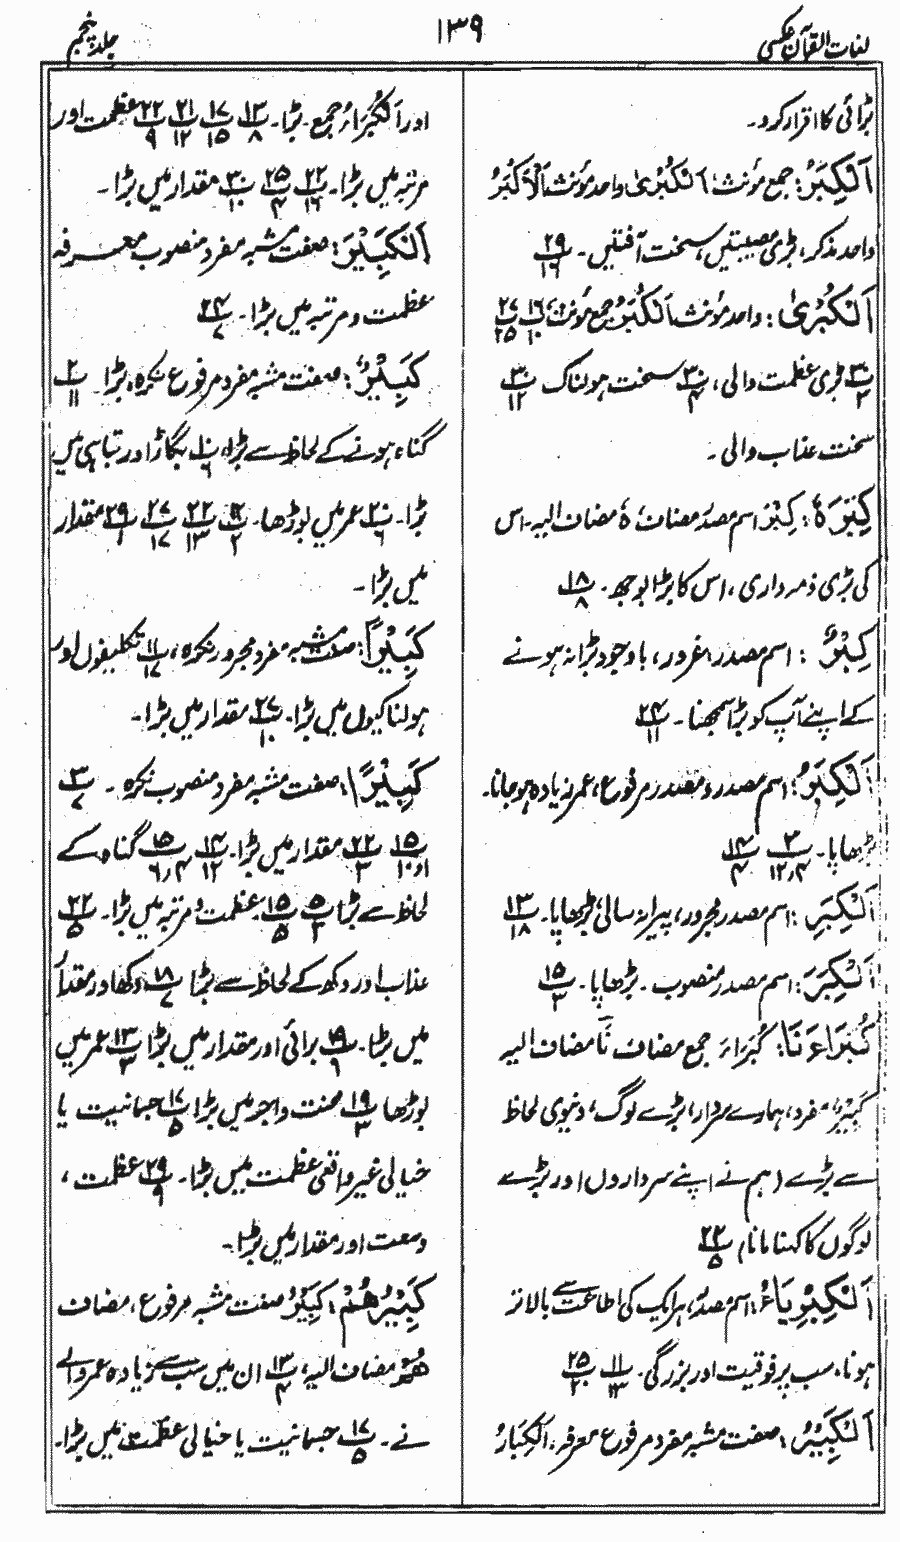 لغات القرآن عکسی
۱۳۹
جلد پنجم
بڑائی کا اقرار کرد۔
اَلْکُبَرُ: جمع مؤنث؛ اَلْکُبْرٰی واحد مؤنث اَلْاَکْبَرُ
واحد مذکر، بڑی مصیبتیں، سخت آفتیں۔ پ۲۹/۱۶
اَلْکُبْرٰی: واحد مؤنث اَلْکُبَرُ جمع مؤنث، پ۱۶/۱۰ پ۲۷/۲۵
پ۳۰/۲ بڑی عظمت والی، پ۳۰/۴ سخت ہولناک پ۳۰/۱۲
سخت عذاب والی۔
کِبْرَہٗ: کِبْرَ اسم مصدر مضاف، ہٗ مضاف الیہ۔ اس
کی بڑی ذمہ داری، اس کا بڑا بوجھ۔ پ۱۸/۸
کِبْرٌ: اسم مصدر، غرور، باوجود بڑا نہ ہونے
کے اپنے آپ کو بڑا سمجھنا۔ پ۲۴/۱۱
اَلْکِبَرُ: اسم مصدر و مصدر مرفوع، عمر زیادہ ہو جانا۔
بڑھاپا۔ پ۳/۱۲،۴ پ۱۴/۴
اَلْکِبَرِ: اسم مصدر مجرور، پیرانہ سالی، بڑھاپا۔ پ۱۳/۱۸
اَلْکِبَرَ: اسم مصدر منصوب۔ بڑھاپا۔ پ۱۵/۳
کُبَرَاءَنَا: کُبَرَاءَ جمع مضاف نَا مضاف الیہ
کَبِیْرٌ، مفرد، ہمارے سردار، بڑے لوگ، دنیوی لحاظ
سے بڑے (ہم نے اپنے سرداروں اور بڑے
لوگوں کا کہنا مانا) پ۲۲/۵
اَلْکِبْرِیَاءُ: اسم مصدر، ہر ایک کی اطاعت سے بالاتر
ہونا، سب پر فوقیت اور بزرگی۔ پ۱۱/۱۳ پ۲۵/۲۰
اَلْکَبِیْرُ: صفت مشبہ مفرد مرفوع معرفہ، اَلْکِبَارُ
اور اَلْکُبَرَاءُ جمع۔ بڑا۔ پ۱۳/۸ پ۱۷/۱۵ پ۲۱/۱۲ پ۲۲/۹ عظمت اور
مرتبہ میں بڑا۔ پ۲۲/۱۶ پ۲۵/۴ پ۳۰/۱۰ مقدار میں بڑا۔
اَلْکَبِیْرَ: صفت مشبہ مفرد منصوب معرفہ
عظمت و مرتبہ میں بڑا۔ پ۲۴/۷
کَبِیْرٌ: صفت مشبہ مفرد مرفوع نکرہ، بڑا۔ پ۲/۱۱
گناہ ہونے کے لحاظ سے بڑا، پ۱۰/۶ بگاڑ اور تباہی میں
بڑا۔ پ۲۰/۶ عمر میں بوڑھا۔ پ۱۲/۲ پ۲۲/۱۳ پ۲۷/۱۷ پ۲۹/۱ مقدار
میں بڑا۔
کَبِیْرٍ: صفت مشبہ مفرد مجرور نکرہ، پ۱۱/۱۷ تکلیفوں اور
ہولناکیوں میں بڑا۔ پ۲۷/۱۰ مقدار میں بڑا۔
کَبِیْرًا: صفت مشبہ مفرد منصوب نکرہ۔ پ۳/۷
پ۱۵/۱۰ اور پ۲۲/۳ مقدار میں بڑا۔ پ۱۴/۱۲ پ۱۵/۶،۴ گناہ کے
لحاظ سے بڑا پ۵/۳ پ۱۵/۵ عظمت و مرتبہ میں بڑا۔ پ۲۲/۵
عذاب اور دکھ کے لحاظ سے بڑا پ۱۸/۷ دکھ اور مقدار
میں بڑا۔ پ۱۹/۶ برائی اور مقدار میں بڑا پ۱۳/۳ عمر میں
بوڑھا پ۱۹/۳ محنت و اجر میں بڑا پ۱۷/۵ جسمانیت یا
خیالی غیر واقعی عظمت میں بڑا۔ پ۲۹/۹ عظمت،
وسعت اور مقدار میں بڑا۔
کَبِیْرُهُمْ: کَبِیْرُ صفت مشبہ مرفوع، مضاف
هُمْ مضاف الیہ، پ۱۳/۴ ان میں سب سے زیادہ عمر والے
نے۔ پ۱۷/۵ جسمانیت یا خیالی عظمت میں بڑا۔